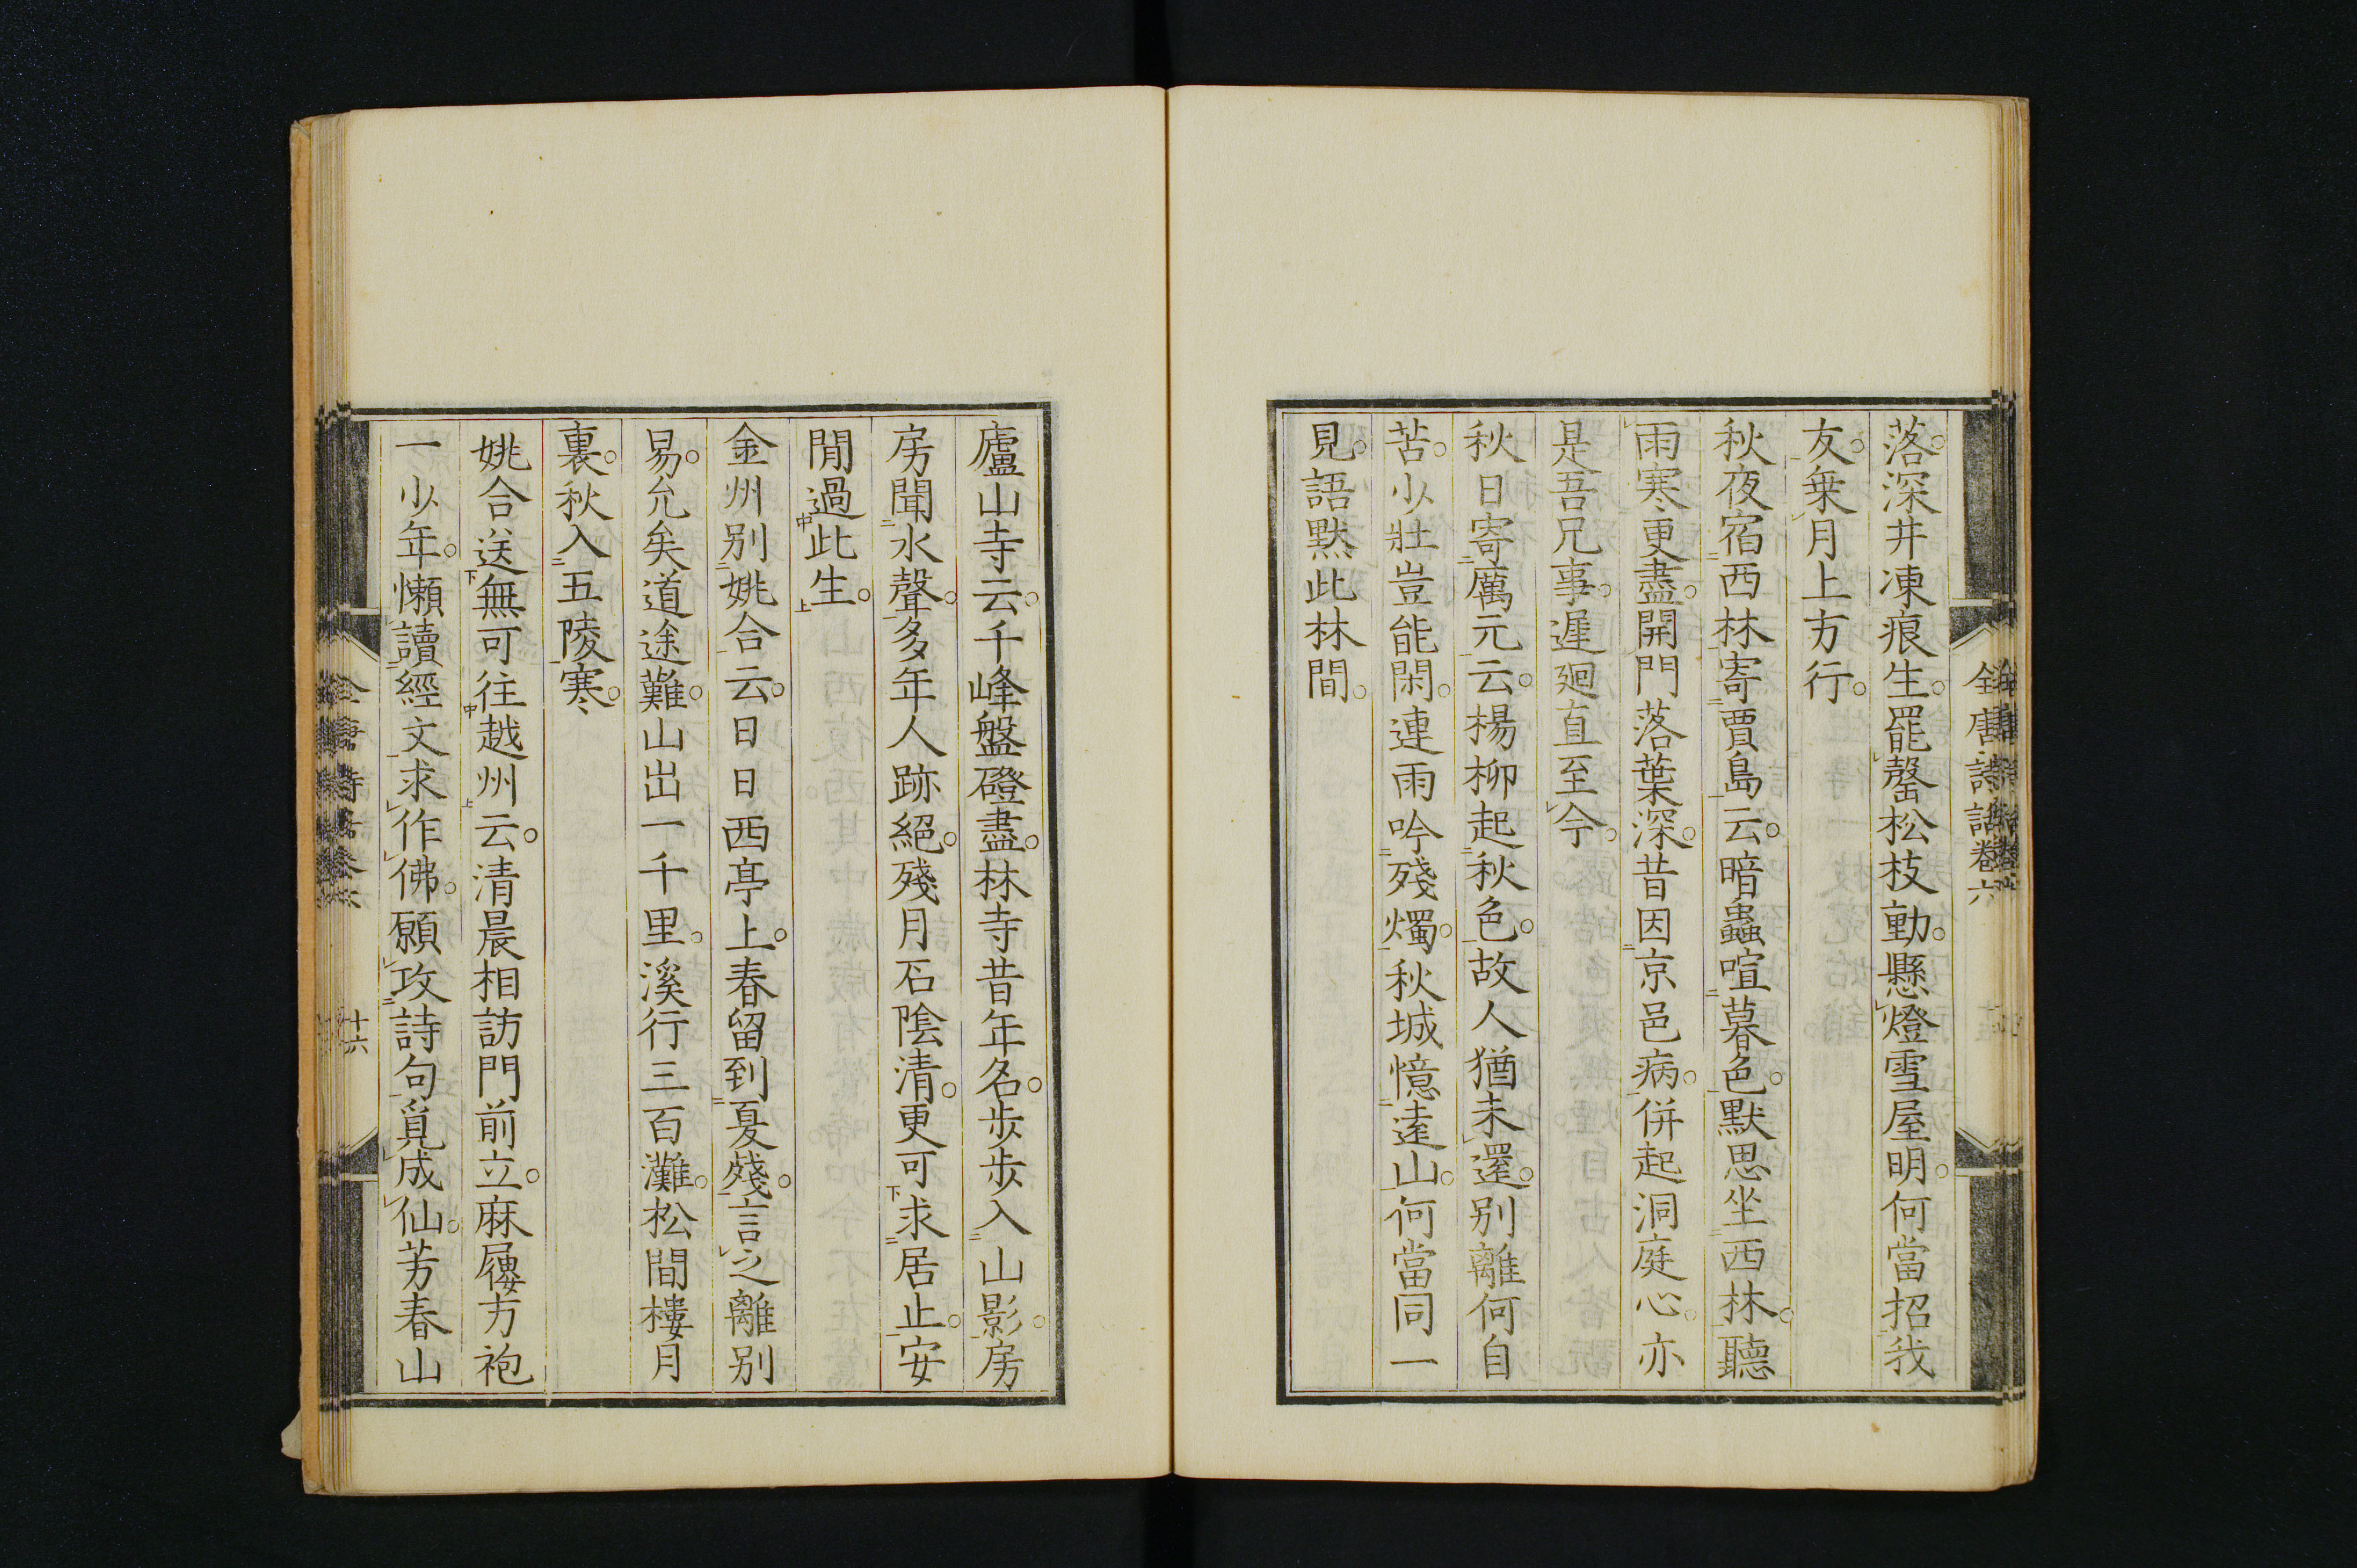 全唐詩話卷六
落。深井凍痕生。罷磬松枝動。懸燈雪屋明。何當招我
友。乗月上方行。
秋夜宿西林寄賈島云。暗蟲喧暮色。默思坐西林。聽
雨寒更盡。開門落葉深。昔因京邑病。併起洞庭心。亦
是吾兄事。遲廻直至今。
秋日寄厲元云。楊柳起秋色。故人猶未還。別離何自
苦。少壯豈能閑。連雨吟殘燭。秋城憶遠山。何當同一
見。語默此林間。
廬山寺云。千峰盤磴盡。林寺昔年名。步步入山影。房
房聞水聲。多年人跡絕。殘月石陰清。更可求居止。安
閒過此生。
金州別姚合云。日日西亭上。春留到夏殘。言之離別
易。允矣道途難。山出一千里。溪行三百灘。松間樓月
裏。秋入五陵寒。
姚合送無可往越州云。清晨相訪門前立。麻屨方袍
一少年。懶讀經文求作佛。願攻詩句覓成仙。芳春山
十六